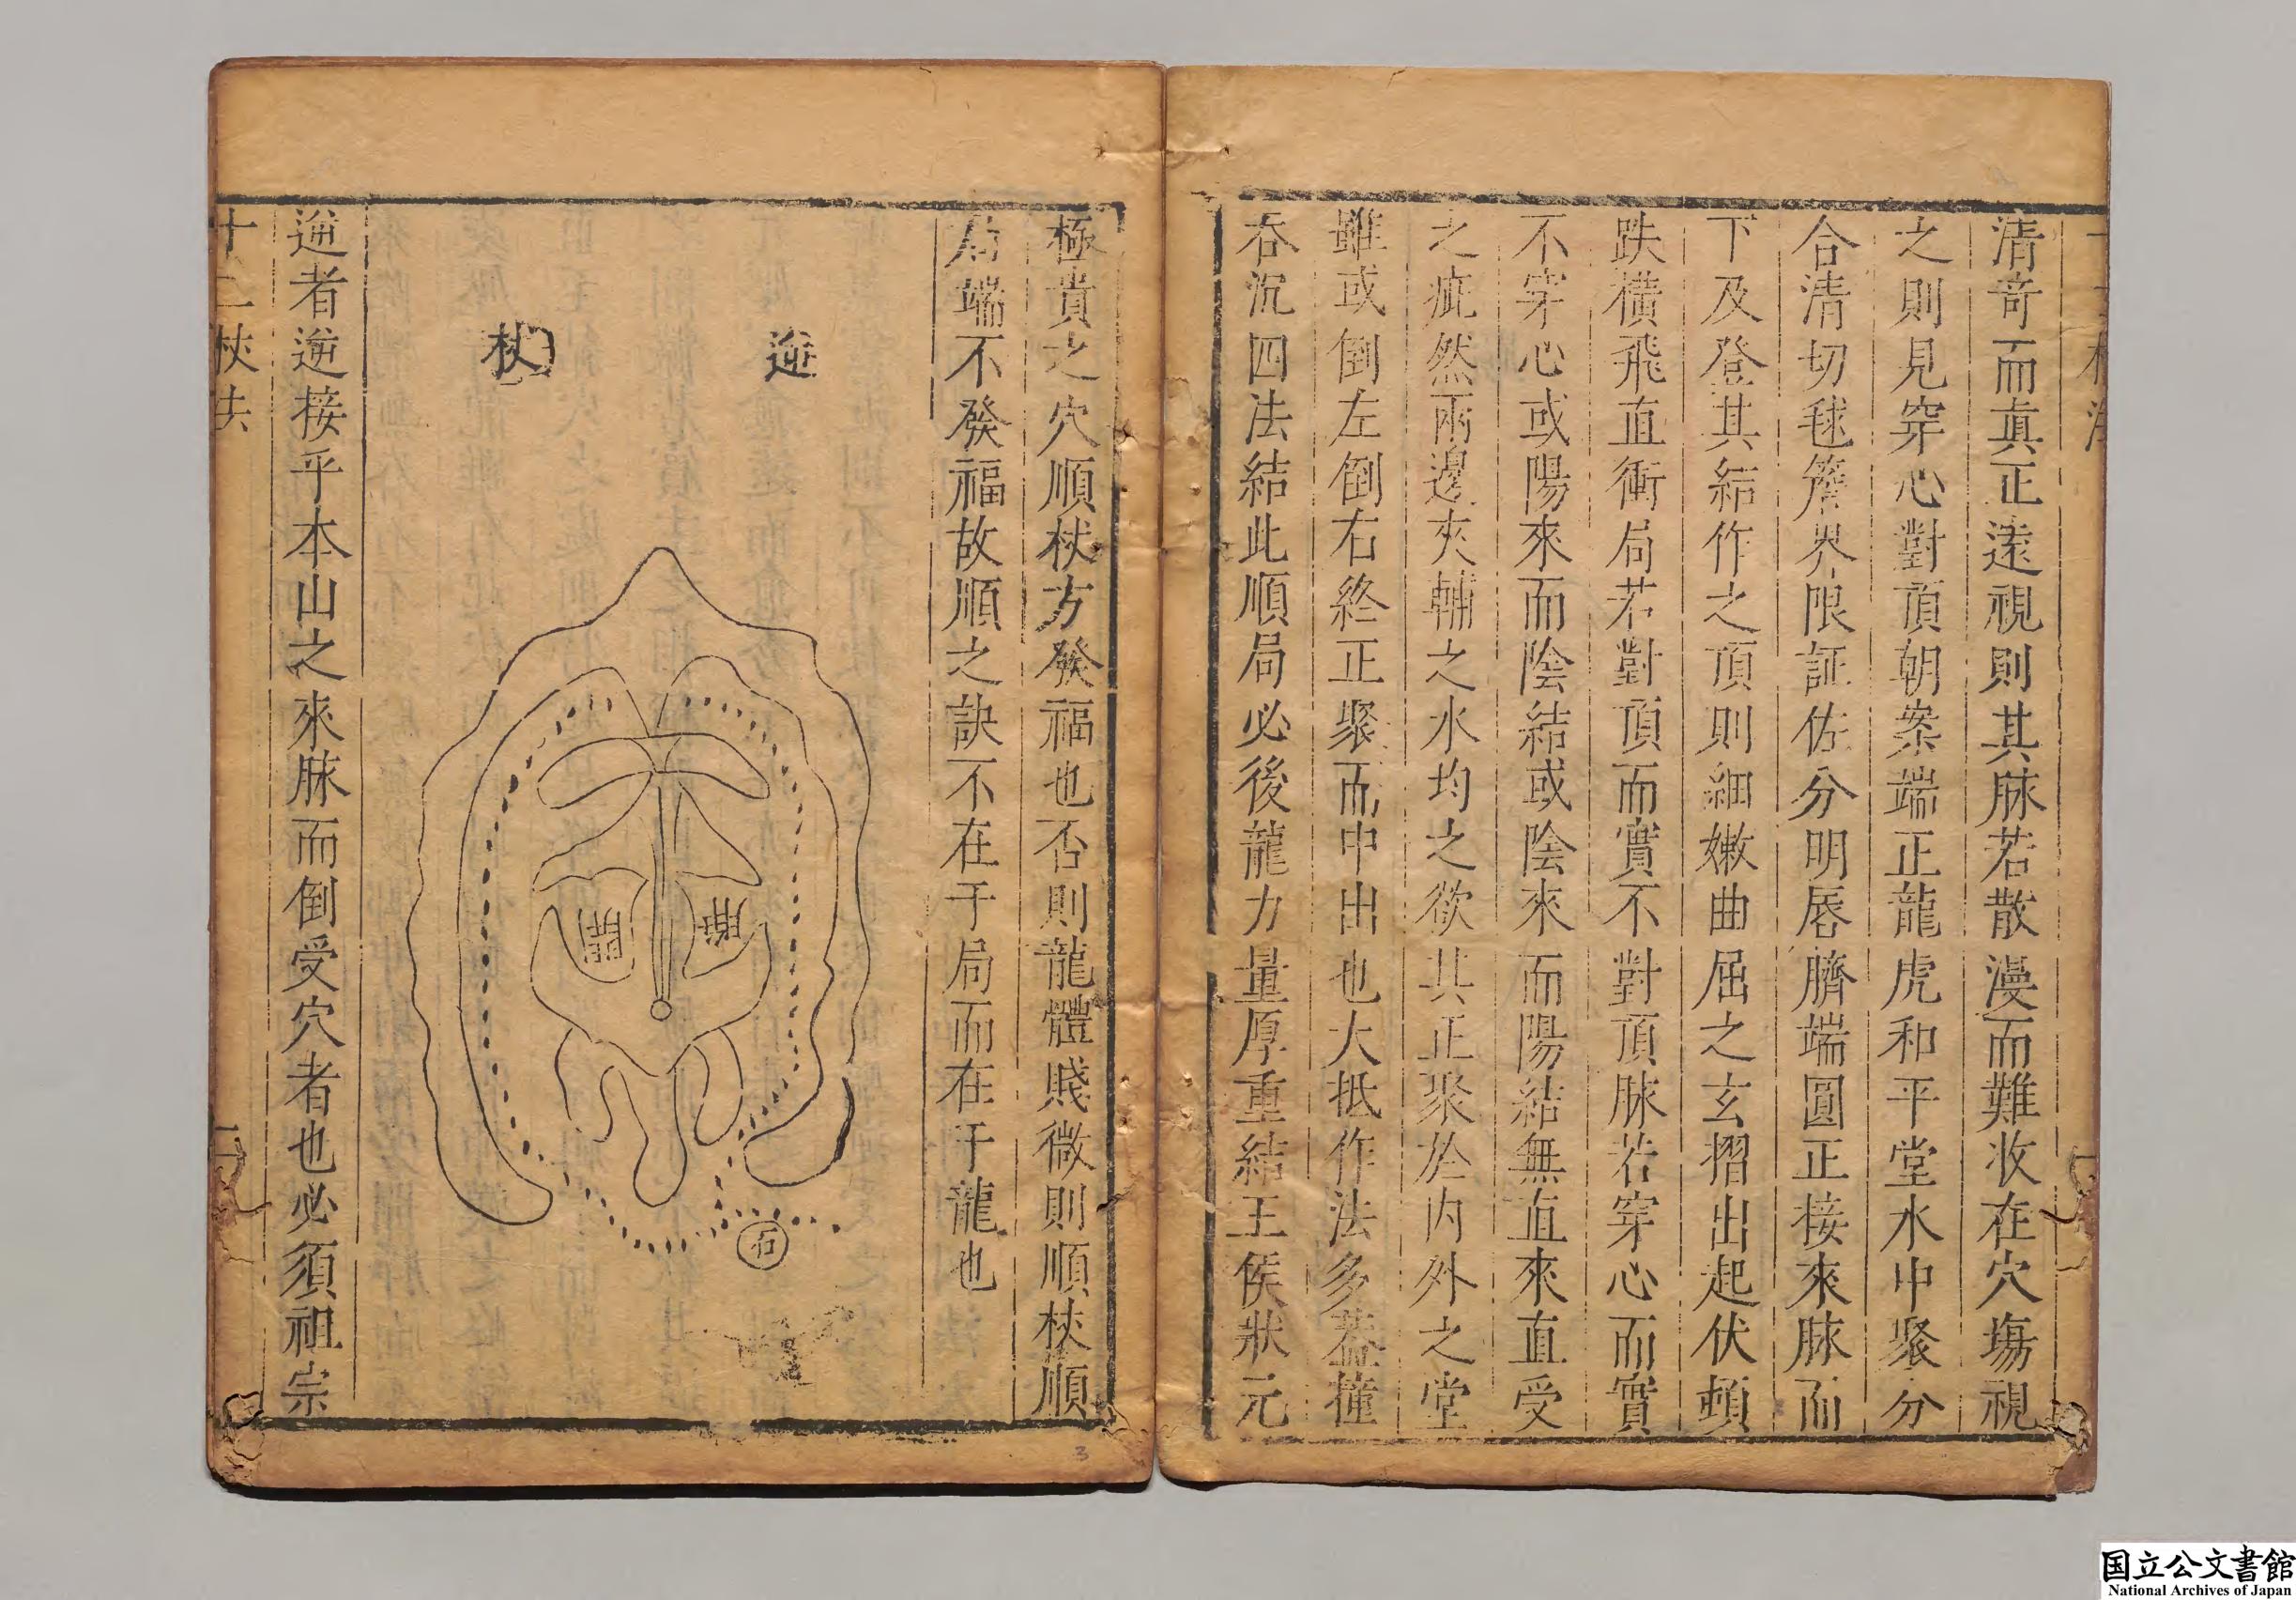 清竒而真正遠視則其脉若散漫而難收在穴塲視
之則見穿心對頂朝案端正龍虎和平堂水中聚分
合清切毬簷界限証佐分明唇臍端圓正接來脉而
下及登其結作之頂則細嫩曲屈之玄摺出起伏頓
跌橫飛直衝局若對頂而實不對頂脉若穿心而實
不穿心或陽來而陰結或陰來而陽結無直來直受
之疵然兩邊夾輔之水均之欲其正聚於內外之堂
雖或倒左倒右終正聚而中出也大抵作法多葢撞
吞沉四法結此順局必後龍力量厚重結王侯狀元
極貴之穴順杖方發福也否則龍體賤微則順杖順
局端不發福故順之訣不在于局而在于龍也
逆
杖
石
逆者逆接乎本山之來脉而倒受穴者也必須祖宗
十二杖法
3
国立公文書館
National Archives of Japan